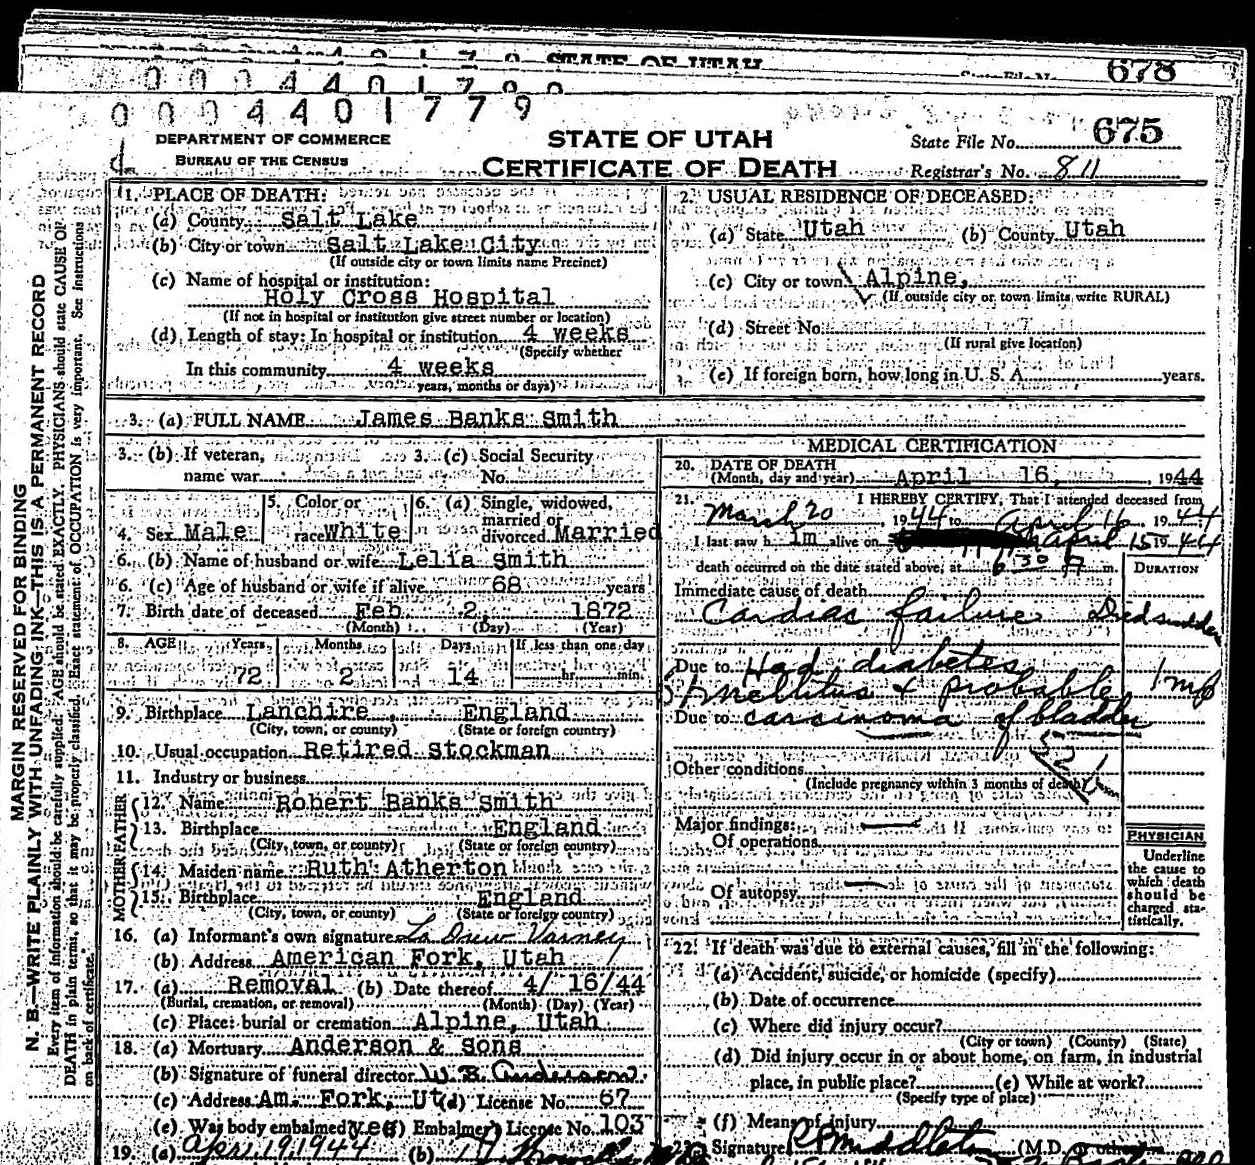 STATE OF UTAH
State File No. 678
0 0 0 4 4 0 1 7
0 0 0 4 4 0 1 7 7 9
DEPARTMENT OF COMMERCE
BUREAU OF THE CENSUS
STATE OF UTAH
CERTIFICATE OF DEATH
State File No. 675
Registrar's No. 811
MARGIN RESERVED FOR BINDING
N. B.—WRITE PLAINLY WITH UNFADING INK—THIS IS A PERMANENT RECORD
Every item of information should be carefully supplied. AGE should be stated EXACTLY. PHYSICIANS should state CAUSE OF
DEATH in plain terms, so that it may be properly classified. Exact statement of OCCUPATION is very important. See instructions
on back of certificate.
1. PLACE OF DEATH:
(a) County Salt Lake
(b) City or town Salt Lake City
(If outside city or town limits name Precinct)
(c) Name of hospital or institution:
Holy Cross Hospital
(If not in hospital or institution give street number or location)
(d) Length of stay: In hospital or institution 4 weeks
(Specify whether
In this community 4 weeks
years, months or days)
2. USUAL RESIDENCE OF DECEASED:
(a) State Utah (b) County Utah
(c) City or town Alpine,
(If outside city or town limits write RURAL)
(d) Street No.
(If rural give location)
(e) If foreign born, how long in U. S. A. years.
3. (a) FULL NAME James Banks Smith
3. (b) If veteran, 3. (c) Social Security
name war No.
4. Sex Male 5. Color or race White 6. (a) Single, widowed, married or divorced Married
6. (b) Name of husband or wife Lelia Smith
6. (c) Age of husband or wife if alive 68 years
7. Birth date of deceased Feb 2, 1872
(Month) (Day) (Year)
8. AGE Years Months Days If less than one day
72 2 14 hr. min.
9. Birthplace Lanchire, England
(City, town, or county) (State or foreign country)
10. Usual occupation Retired Stockman
11. Industry or business
FATHER
12. Name Robert Banks Smith
13. Birthplace England
(City, town, or county) (State or foreign country)
MOTHER
14. Maiden name Ruth Atherton
15. Birthplace England
(City, town, or county) (State or foreign country)
16. (a) Informant's own signature La Drew Varney
(b) Address American Fork, Utah
17. (a) Removal (b) Date thereof 4/ 16/44
(Burial, cremation, or removal) (Month) (Day) (Year)
(c) Place: burial or cremation Alpine, Utah
18. (a) Mortuary Anderson & Sons
(b) Signature of funeral director W. B. Anderson
(c) Address Am. Fork, Ut (d) License No. 67
(e) Was body embalmed yes (f) Embalmer's License No. 103
19. (a) April 19, 1944 (b)
MEDICAL CERTIFICATION
20. DATE OF DEATH
(Month, day and year) April 16, 1944
21. I HEREBY CERTIFY, That I attended deceased from
March 20, 1944 to April 16 1944
I last saw h im alive on April 15 1944
death occurred on the date stated above, at 6 30 P m.
DURATION
Immediate cause of death
Cardiac failure Died sudden
Due to Had diabetes
mellitus & probable 1 mo
Due to carcinoma of bladder
Other conditions
(Include pregnancy within 3 months of death)
Major findings:
Of operations
Of autopsy
PHYSICIAN
Underline
the cause to
which death
should be
charged sta-
tistically.
22. If death was due to external causes, fill in the following:
(a) Accident, suicide, or homicide (specify)
(b) Date of occurrence
(c) Where did injury occur?
(City or town) (County) (State)
(d) Did injury occur in or about home, on farm, in industrial
place, in public place? (e) While at work?
(Specify type of place)
(f) Means of injury
23. Signature (M.D. or other)